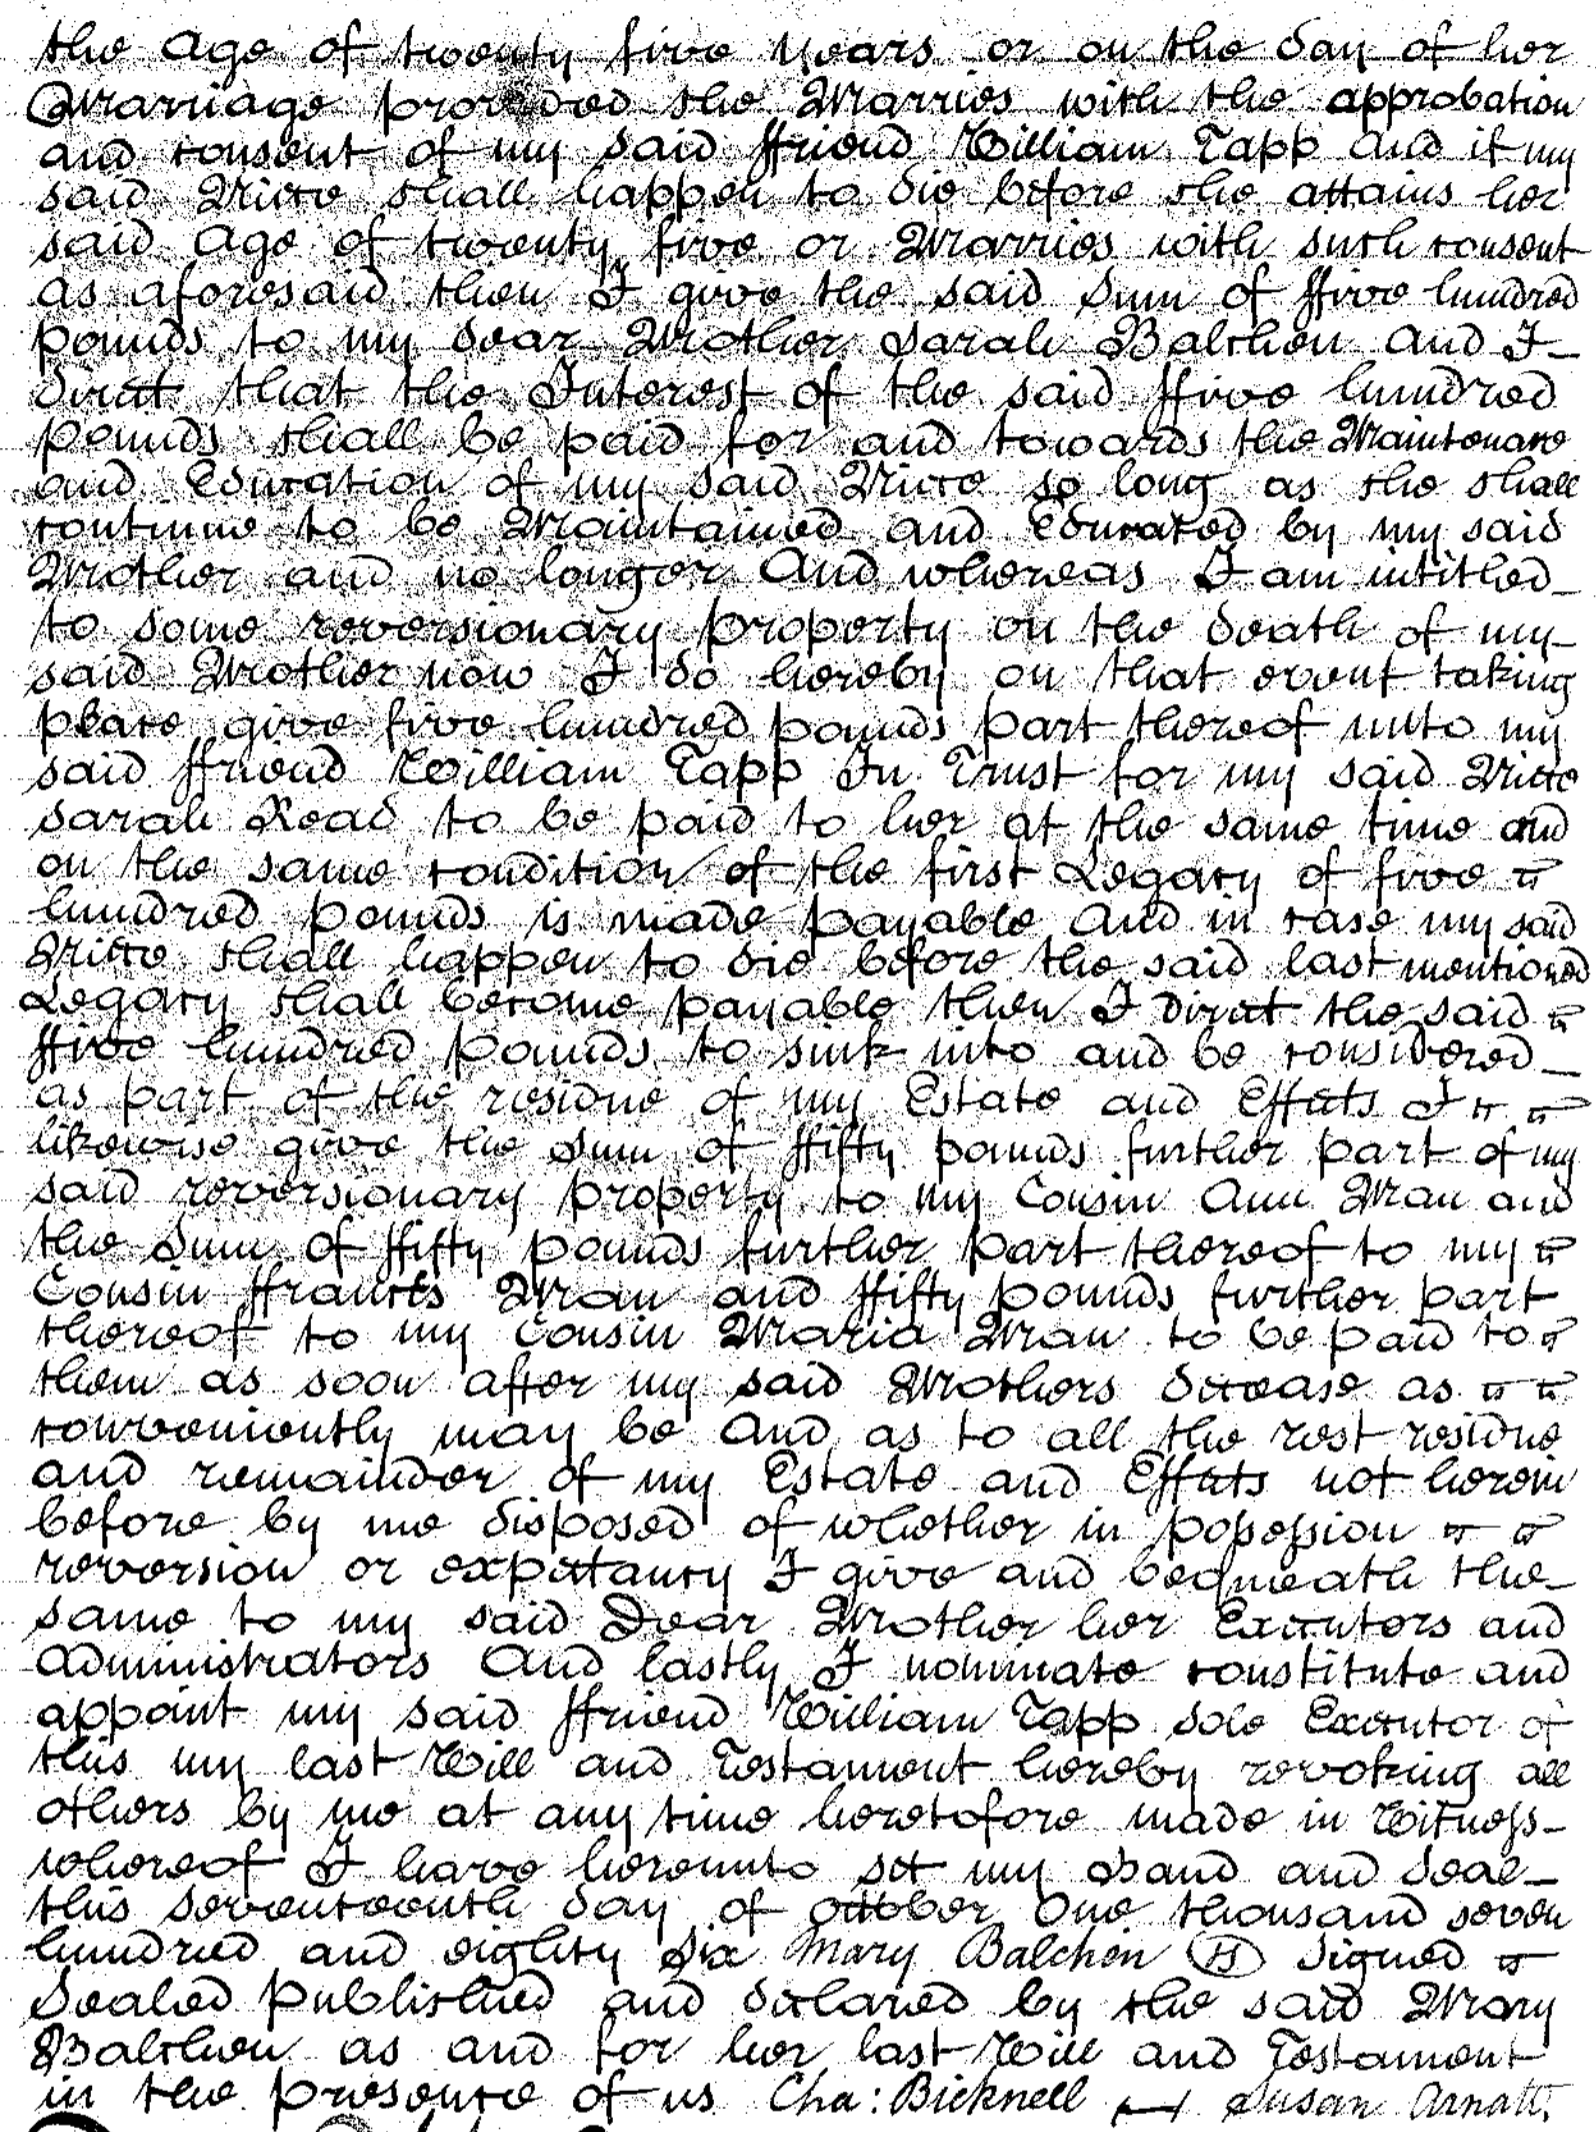 the Age of twenty five years or on the day of her
Marriage provided she Marries with the approbation
and consent of my said ffriend William Tapp And if my
said Niece shall happen to die before she attains her
said Age of twenty five or Marries with such consent
as aforesaid then I give the said Sum of ffive hundred
pounds to my dear Mother Sarah Balchen And I
direct that the Interest of the said ffive hundred
pounds shall be paid for and towards the Maintenance
and Education of my said Niece so long as she shall
continue to be Maintained and Educated by my said
Mother and no longer And whereas I am intitled
to some reversionary property on the death of my
said Mother now I do hereby on that event taking
place give five hundred pounds part thereof unto my
said ffriend William Tapp In Trust for my said Niece
Sarah Read to be paid to her at the same time and
on the same condition of the first Legacy of five
hundred pounds is made payable And in case my said
Niece shall happen to die before the said last mentioned
Legacy shall become payable then I direct the said
ffive hundred pounds to sink into and be considered
as part of the residue of my Estate and Effects I
likewise give the Sum of ffifty pounds further part of my
said reversionary property to my Cousin Ann Man and
the Sum of ffifty pounds further part thereof to my
Cousin ffrances Man and ffifty pounds further part
thereof to my Cousin Maria Man to be paid to
them as soon after my said Mothers decease as
conveniently may be And as to all the rest residue
and remainder of my Estate and Effects not herein
before by me disposed of whether in possession
reversion or expectancy I give and bequeath the
same to my said Dear Mother her Executors and
Administrators And lastly I nominate constitute and
appoint my said ffriend William Tapp Sole Executor of
this my last Will and Testament hereby revoking all
others by me at any time heretofore made in Witness
whereof I have hereunto set my Hand and Seal
this seventeenth day of October One thousand seven
hundred and eighty Six Mary Balchen LS Signed
Sealed published and declared by the said Mary
Balchen as and for her last Will and Testament
in the presence of us Cha: Bicknell Susan Arnatt.